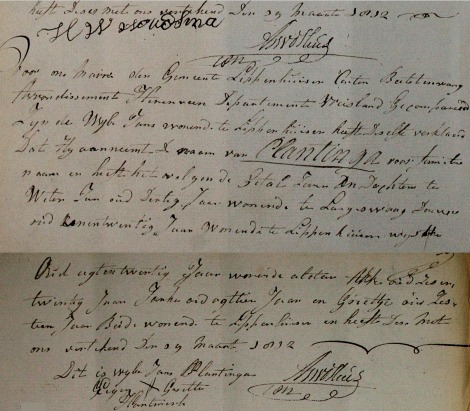 heeft Deses met ons vertekend Den 29 Maarte 1812
H W Woudsma
Voor ons Maire der Gemeente Lippenhuisen Canton Beetsterzwaag
Arrondissement Heerenveen Departemente Vriesland Gecompareerd
Zijnde Wybe Jans wonende te Lippenhuisen heeft Deselve verklaard
Dat Hy aanneemt de naam van Plantinga voor familie
naam en heeft het volgende Getal Zoons en Dochters te
Weten Jan oud Dertig Jaar wonende te Langezwaag Douwe
oud eenentwintig Jaar Wonende te Lippenhuisen wybe
Oud agtentwintig Jaar wonende alsten oud Zesen
twintig Jaar Janke oud agttien Jaar en Grietje oud Zes
tien Jaar Beide wonende te Lippenhuisen en heeft Deses Met
ons vertekend Den 29 Maart 1812
Dit is wybe Jans Plantinga
Eigen X Gesette
Hantmerk